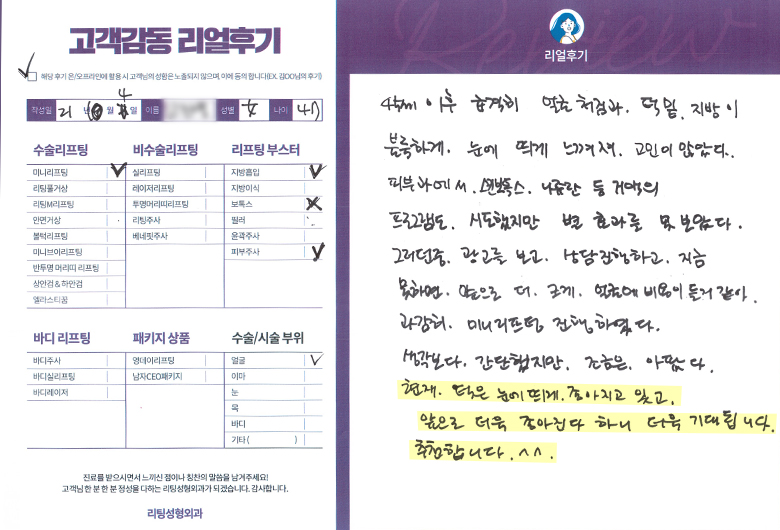 고객감동 리얼후기
해당 후기 온/오프라인에 활용 시 고객님의 성함은 노출되지 않으며, 이에 동의 합니다(EX. 김OO님의 후기)
작성일 21 년 월 4 일 이름 성별 女 나이 47
수술리프팅
미니리프팅
리팅풀거상
리팅M리프팅
안면거상
볼턱리프팅
미니브이리프팅
반투명 머리띠 리프팅
상안검 & 하안검
엘라스티꿈
비수술리프팅
실리프팅
레이저리프팅
투명머리띠리프팅
리팅주사
베네핏주사
리프팅 부스터
지방흡입
지방이식
보톡스
필러
윤곽주사
피부주사
바디 리프팅
바디주사
바디실리프팅
바디레이저
패키지 상품
영데이리프팅
남자CEO패키지
수술/시술 부위
얼굴
이마
눈
목
바디
기타 ( )
진료를 받으시면서 느끼신 점이나 칭찬의 말씀을 남겨주세요!
고객님 한 분 한 분 정성을 다하는 리팅성형외과가 되겠습니다. 감사합니다.
리팅성형외과
Review
리얼후기
45세 이후 급격히 얼굴 처짐과, 턱밑, 지방이
볼록하게, 눈에 띄게 느껴져서, 고민이 많았다.
피부과에서, 스킨보톡스, 나름란 등 거액의
프로그램도, 시도했지만 별 효과를 못 보았다.
그러던중, 광고를 보고, 상담진행하고, 지금
못하면, 앞으로 더, 크게, 얼굴에 비용이 들거 같아,
과감히, 미니리프팅 진행하였다.
생각보다, 간단했지만, 조금은, 아팠다.
현재, 턱은 눈에 띄게, 좋아지고 있고,
앞으로 더욱 좋아진다 하니 더욱 기대됩니다.
추천합니다. ^^.